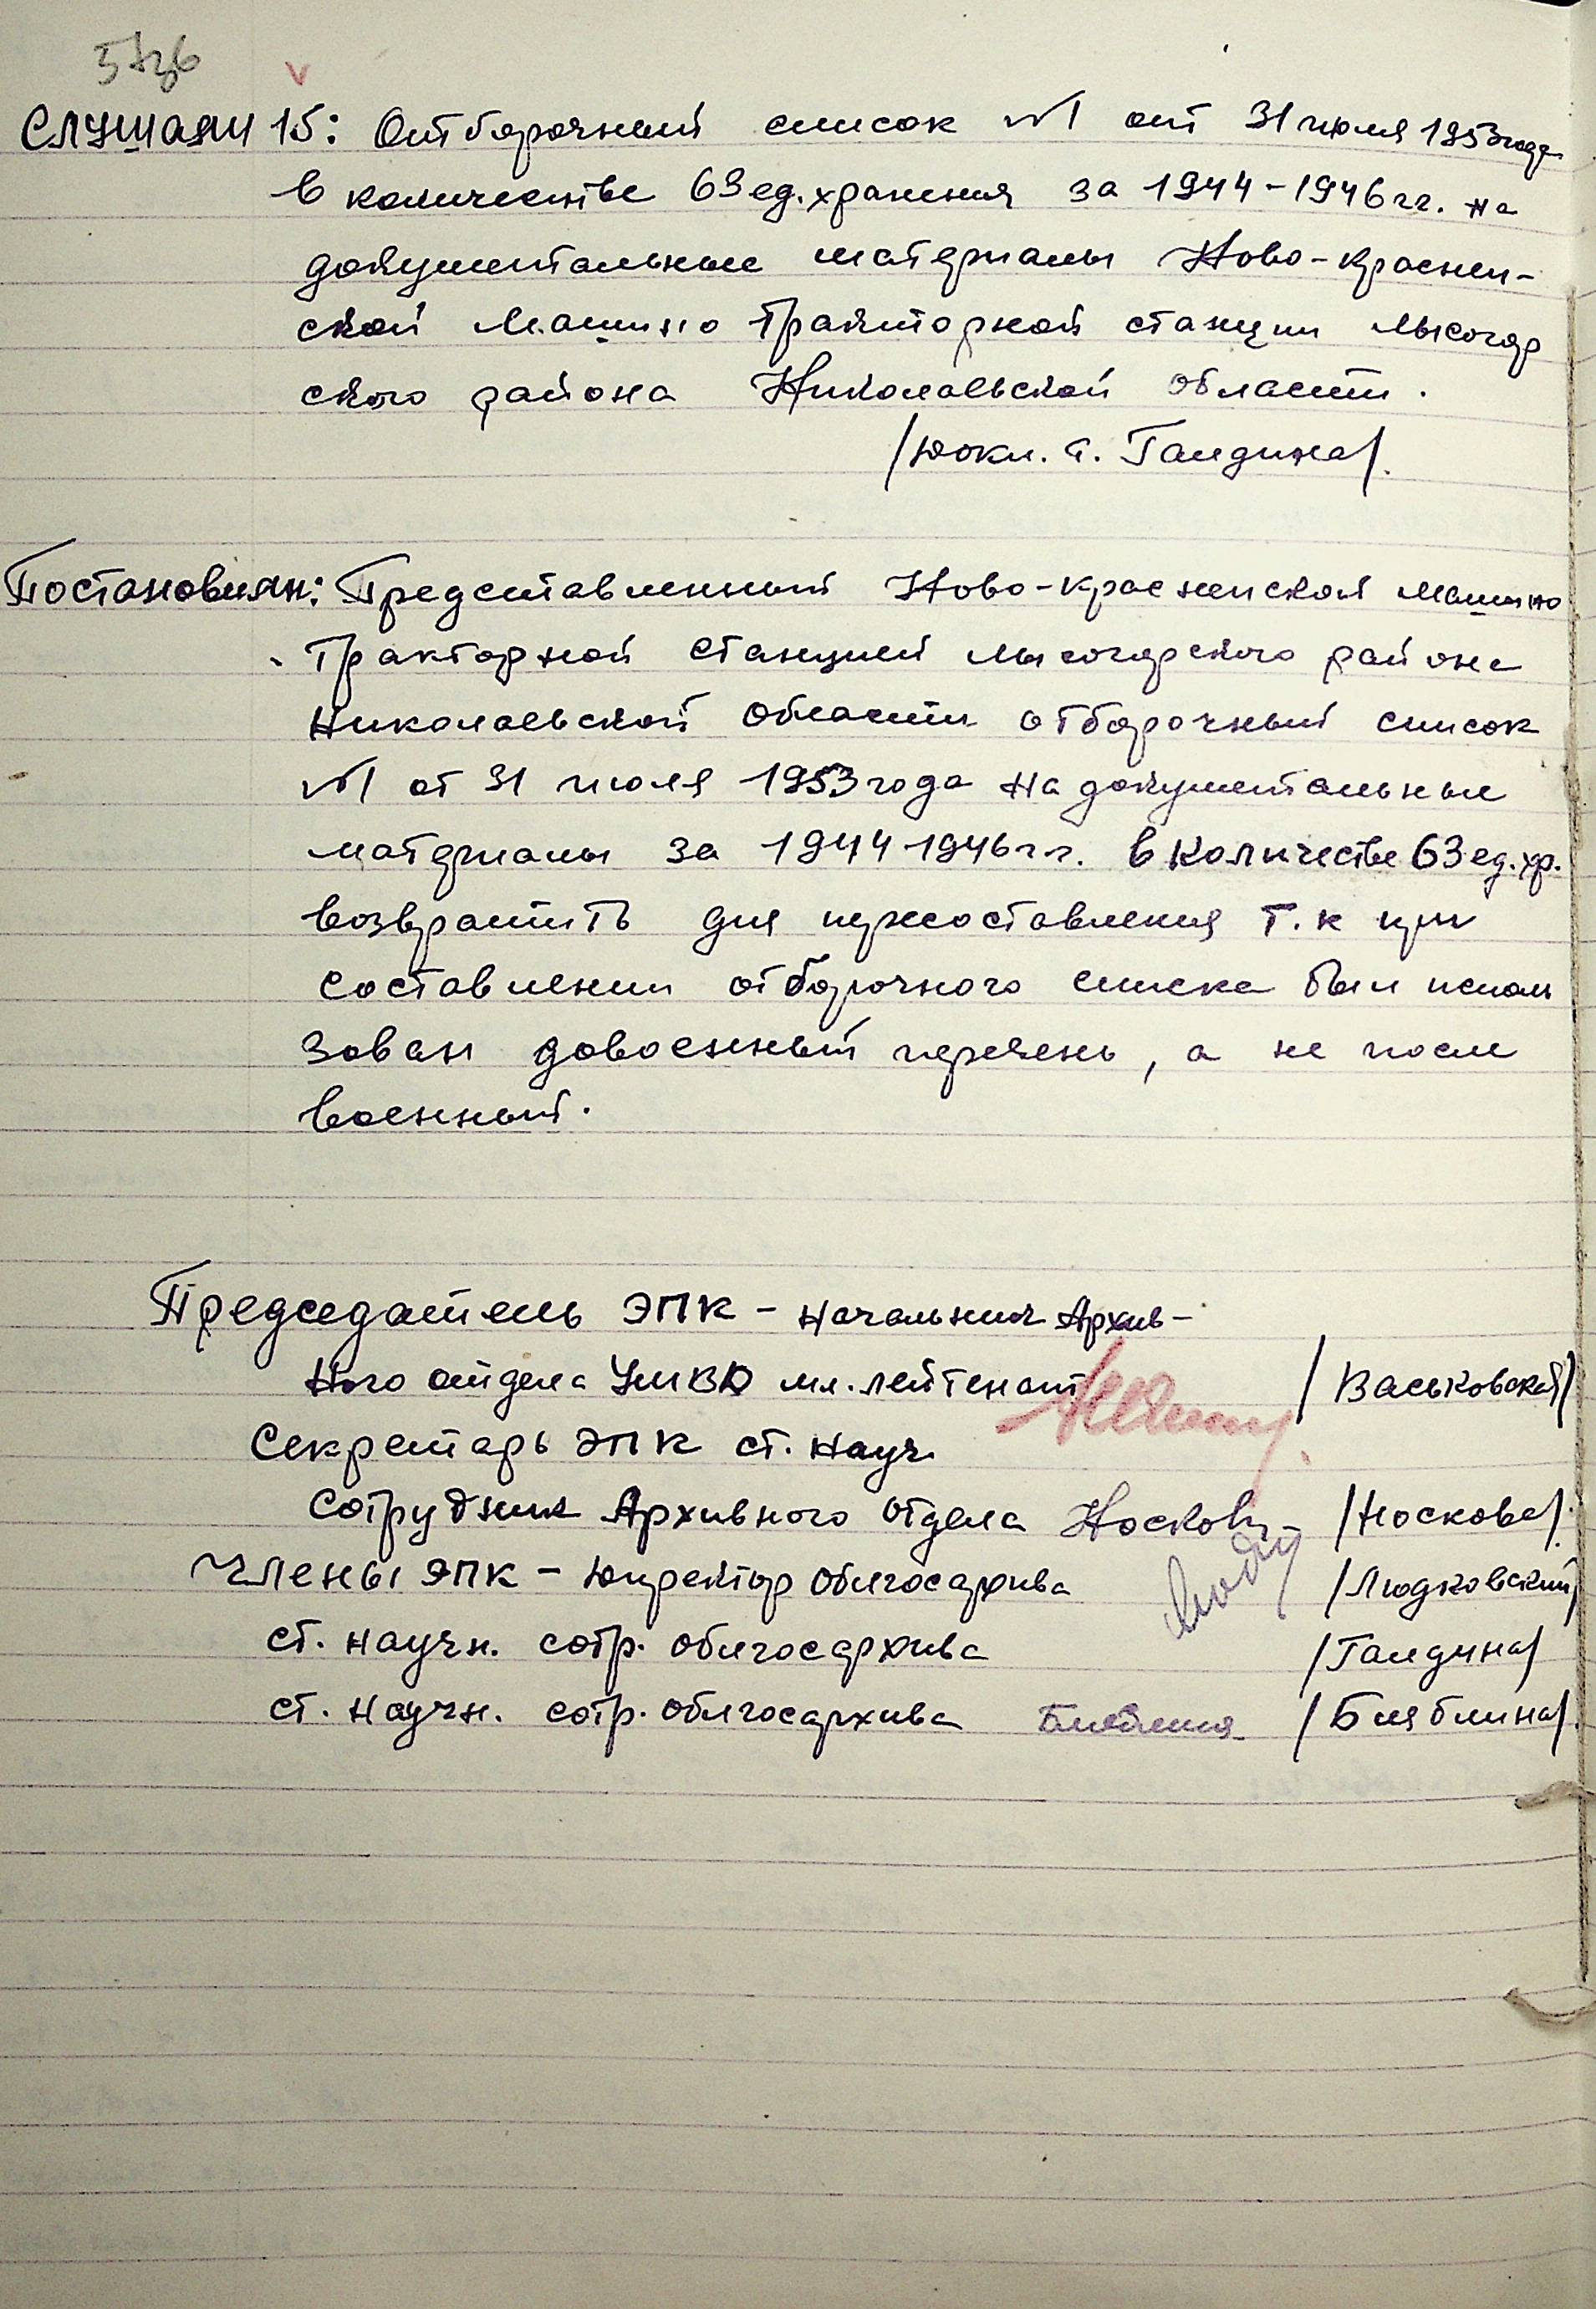 Слушали 15: Отборочный список №1 от 31 июля 1953 года
в количестве 63 ед. хранения за 1944-1946 гг. на
документальные материалы Ново-Краснен-
ской Машино тракторной станции Лысогор
ского района Николаевской области.
/Докл. т. Галдина/.
Постановили: Представленный Ново-красненской машино
тракторной станцией лысогорского района
Николаевской области отборочный список
№1 от 31 июля 1953 года на документальные
материалы за 1944 1946 гг. в количестве 63 ед. хр.
возвратить для пересоставления т.к при
составлении отборочного списка был исполь
зован довоенный перечень, а не после
военный.
Председатель ЭПК - начальник Архив-
ного отдела УМВД мл. лейтенант /Васьковский/
Секретарь ЭПК ст. науч.
сотрудник Архивного отдела Носкова /Носкова/.
Члены ЭПК - Директор облгосархива /Людковский/
ст. научн. сотр. облгосархива /Галдина/
ст. научн. сотр. облгосархива Бляблина /Бляблина/.